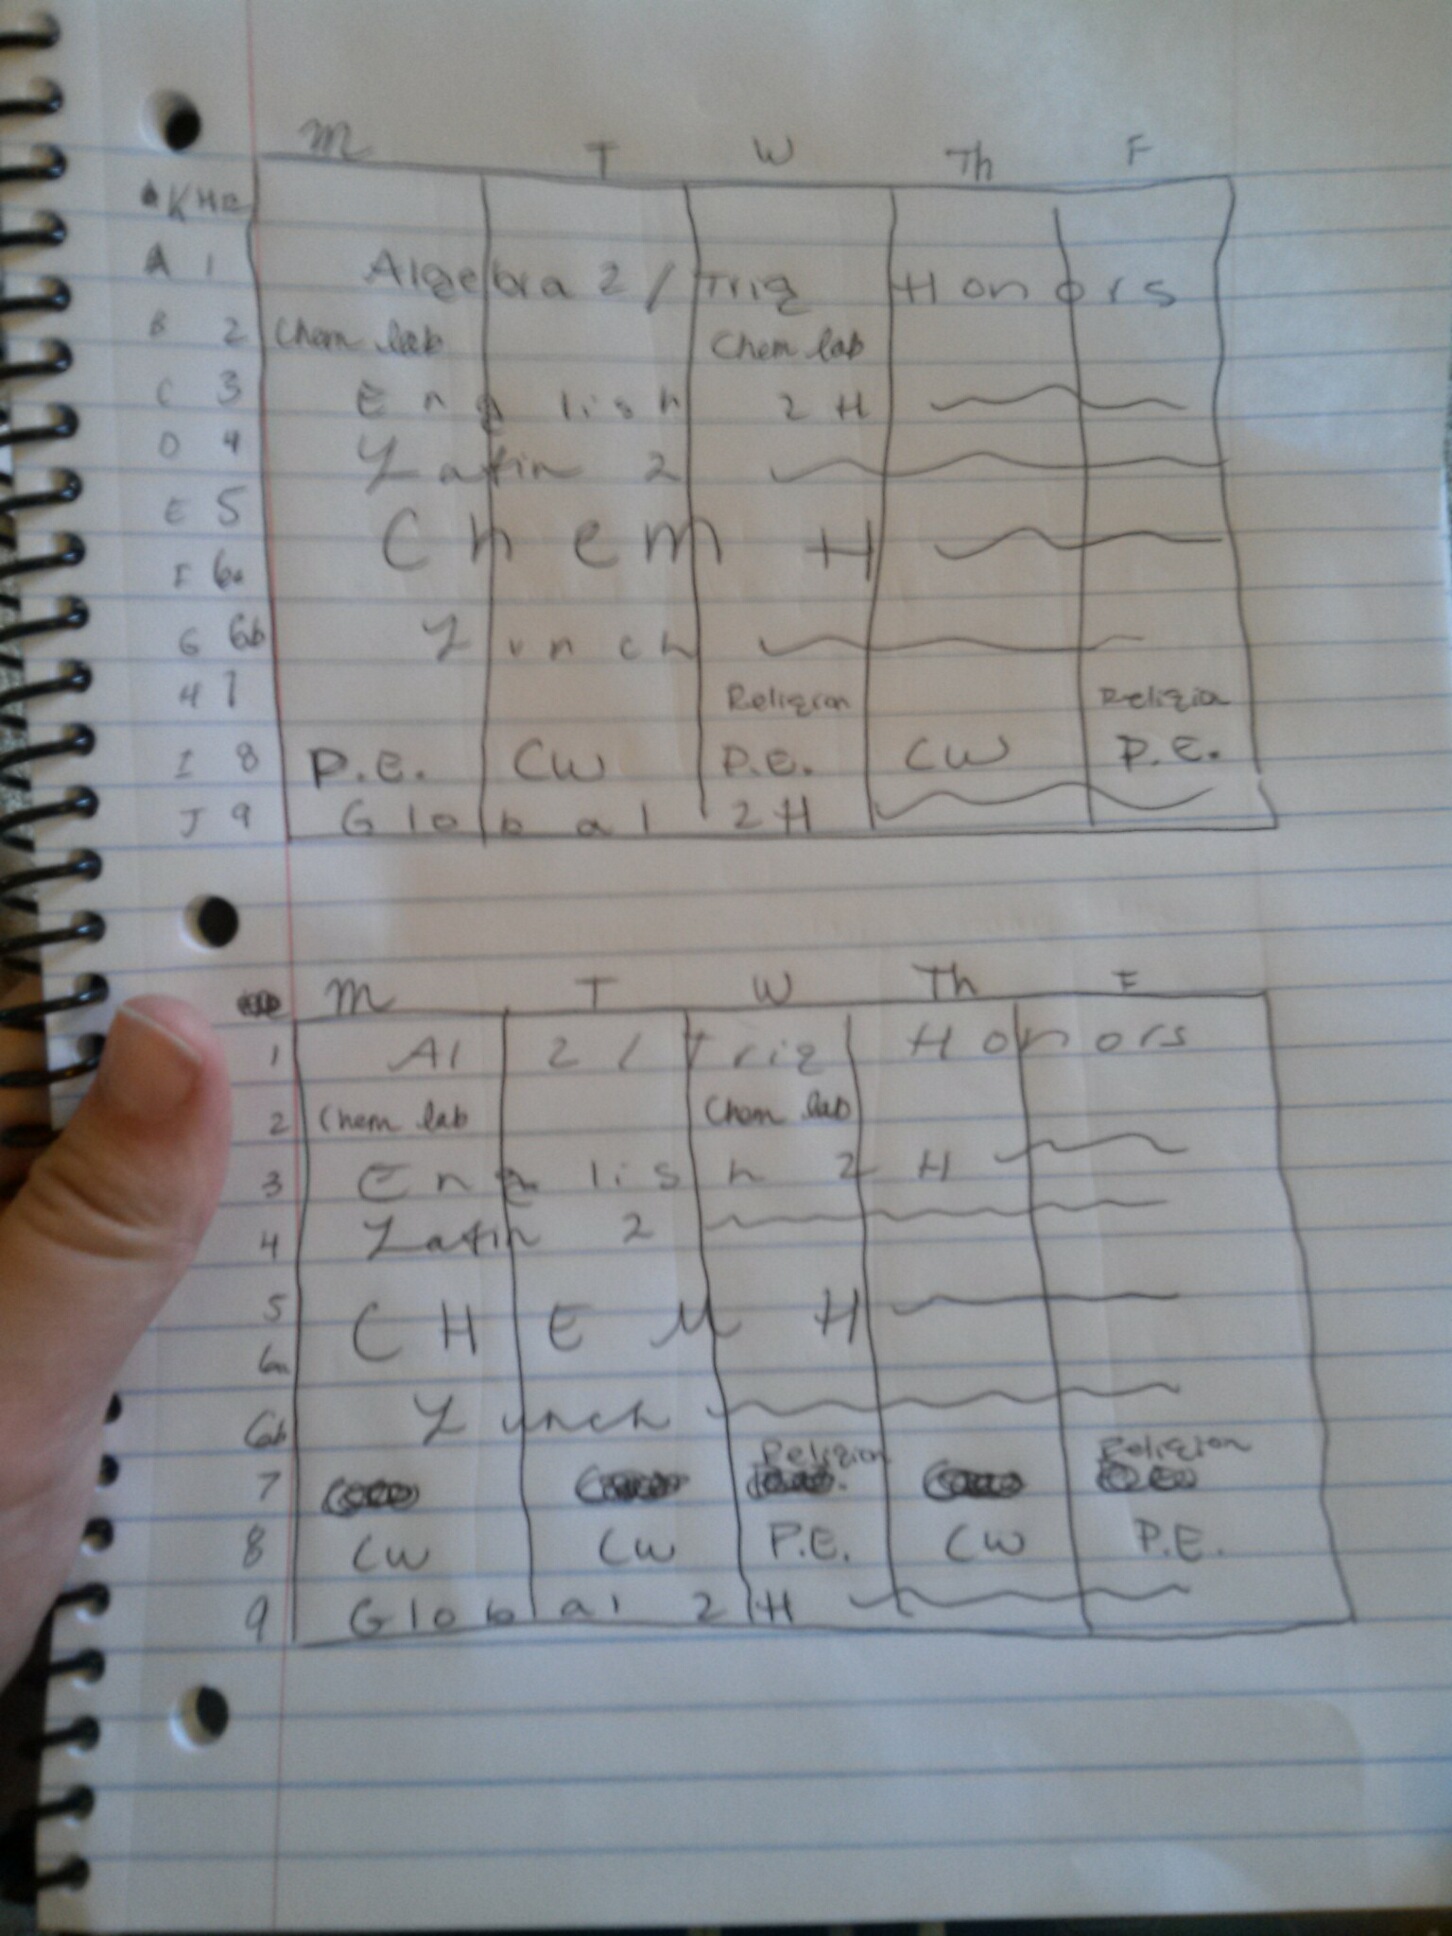 M T W Th F
K HR
A 1 Algebra 2 / Trig Honors
B 2 Chem lab Chem lab
C 3 English 2 H
D 4 Latin 2
E 5 Chem H
F 6a
G 6b Lunch
H 7 Religion Religion
I 8 P.E. CW P.E. CW P.E.
J 9 Global 2H
M T W Th F
1 Al 2 / Trig Honors
2 Chem lab Chem lab
3 English 2 H
4 Latin 2
5 CHEM H
6a
6b Lunch
7 Religion Religion
8 CW CW P.E. CW P.E.
9 Global 2 H